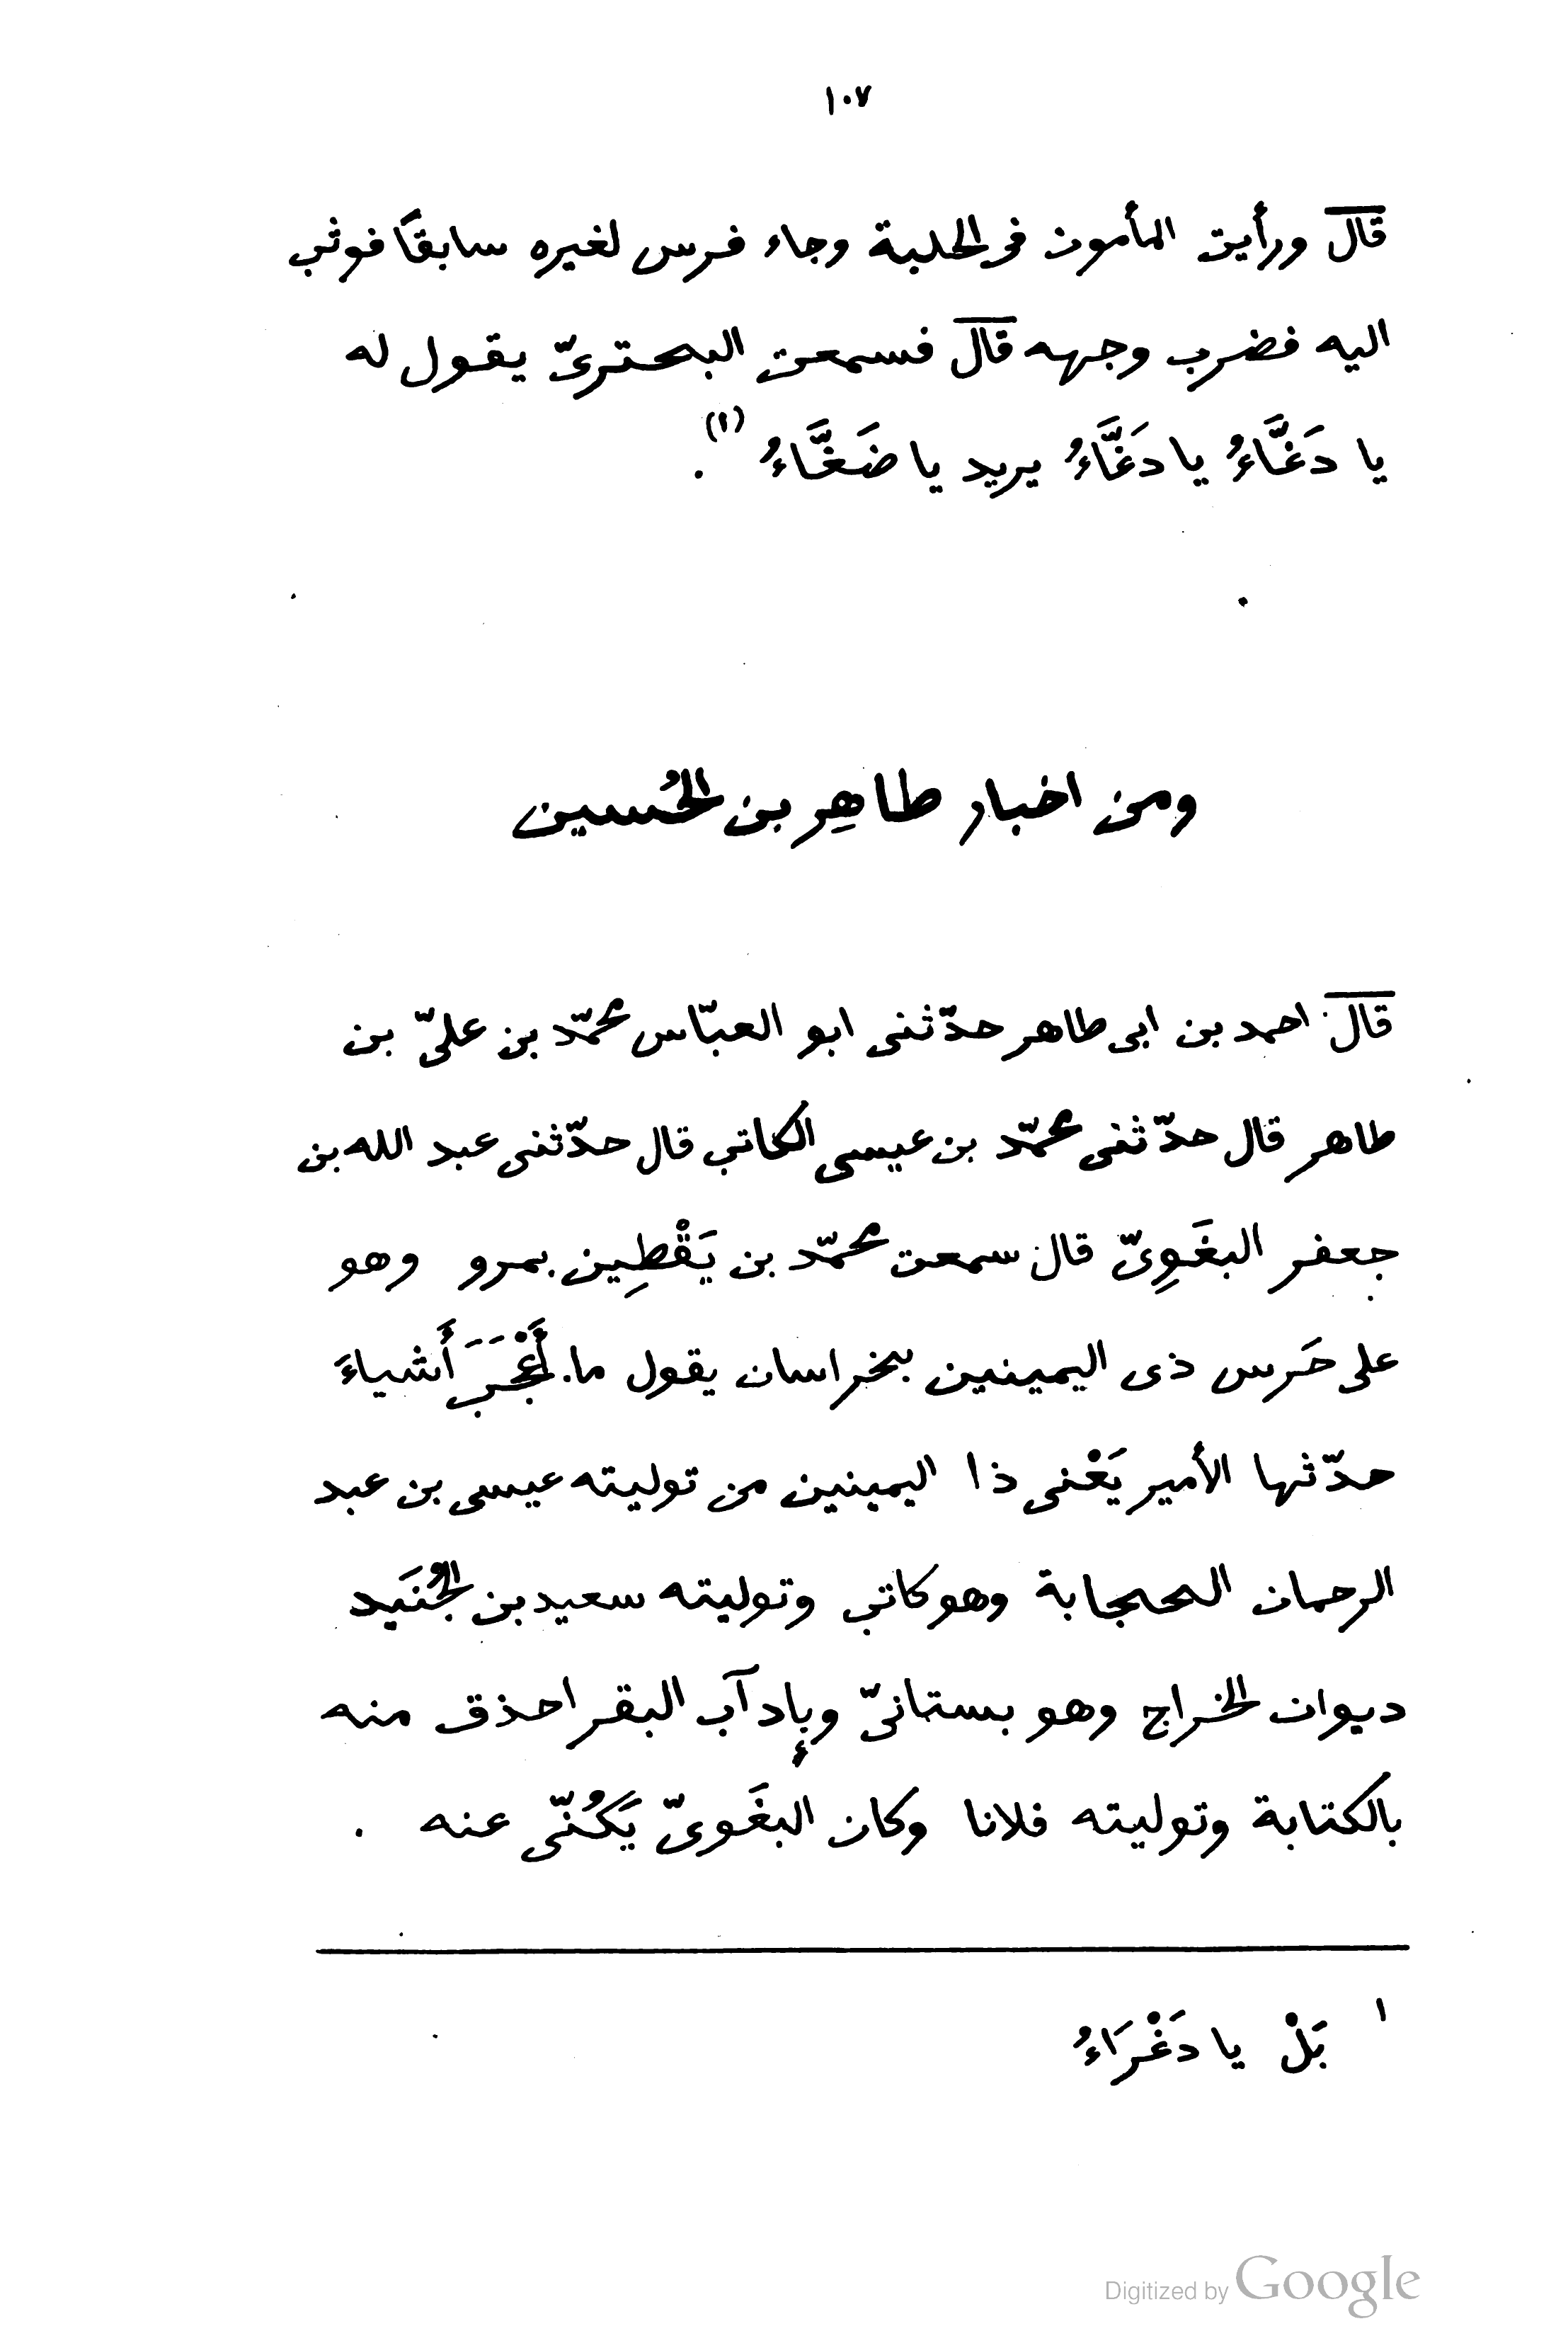 ١٠٧
قال ورأيت المأمون فى الحلبة وجاء فرس لغيره سابقًا فوثب
اليه فضرب وجهه قال فسمعت البحترىّ يقول له
يا دَغَّاءُ يا دَغَّاءُ يريد يا ضَغَّاءُ (١).
ومن اخبار طاهِر بن الحُسين
قال احمد بن ابى طاهر حدّثنى ابو العبّاس محمّد بن علىّ بن
طاهر قال حدّثنى محمّد بن عيسى الكاتب قال حدّثنى عبد الله بن
جعفر البغَوِىّ قال سمعت محمّد بن يَقْطِين بمرو وهو
على حَرس ذى اليمينين بخراسان يقول ما أَعْجَبَ أَشياءَ
حدّثها الأمير يَعْنى ذا اليمينين من توليته عيسى بن عبد
الرحمان الحجابة وهو كاتب وتوليته سعيد بن الجُنَيد
ديوان الخراج وهو بستانىّ وبإدآب البقر احذق منه
بالكتابة وتوليته فلانا وكان البغَوىّ يَكُنّى عنه .
١ بَلْ يا دَغْرَاءُ
Digitized by Google